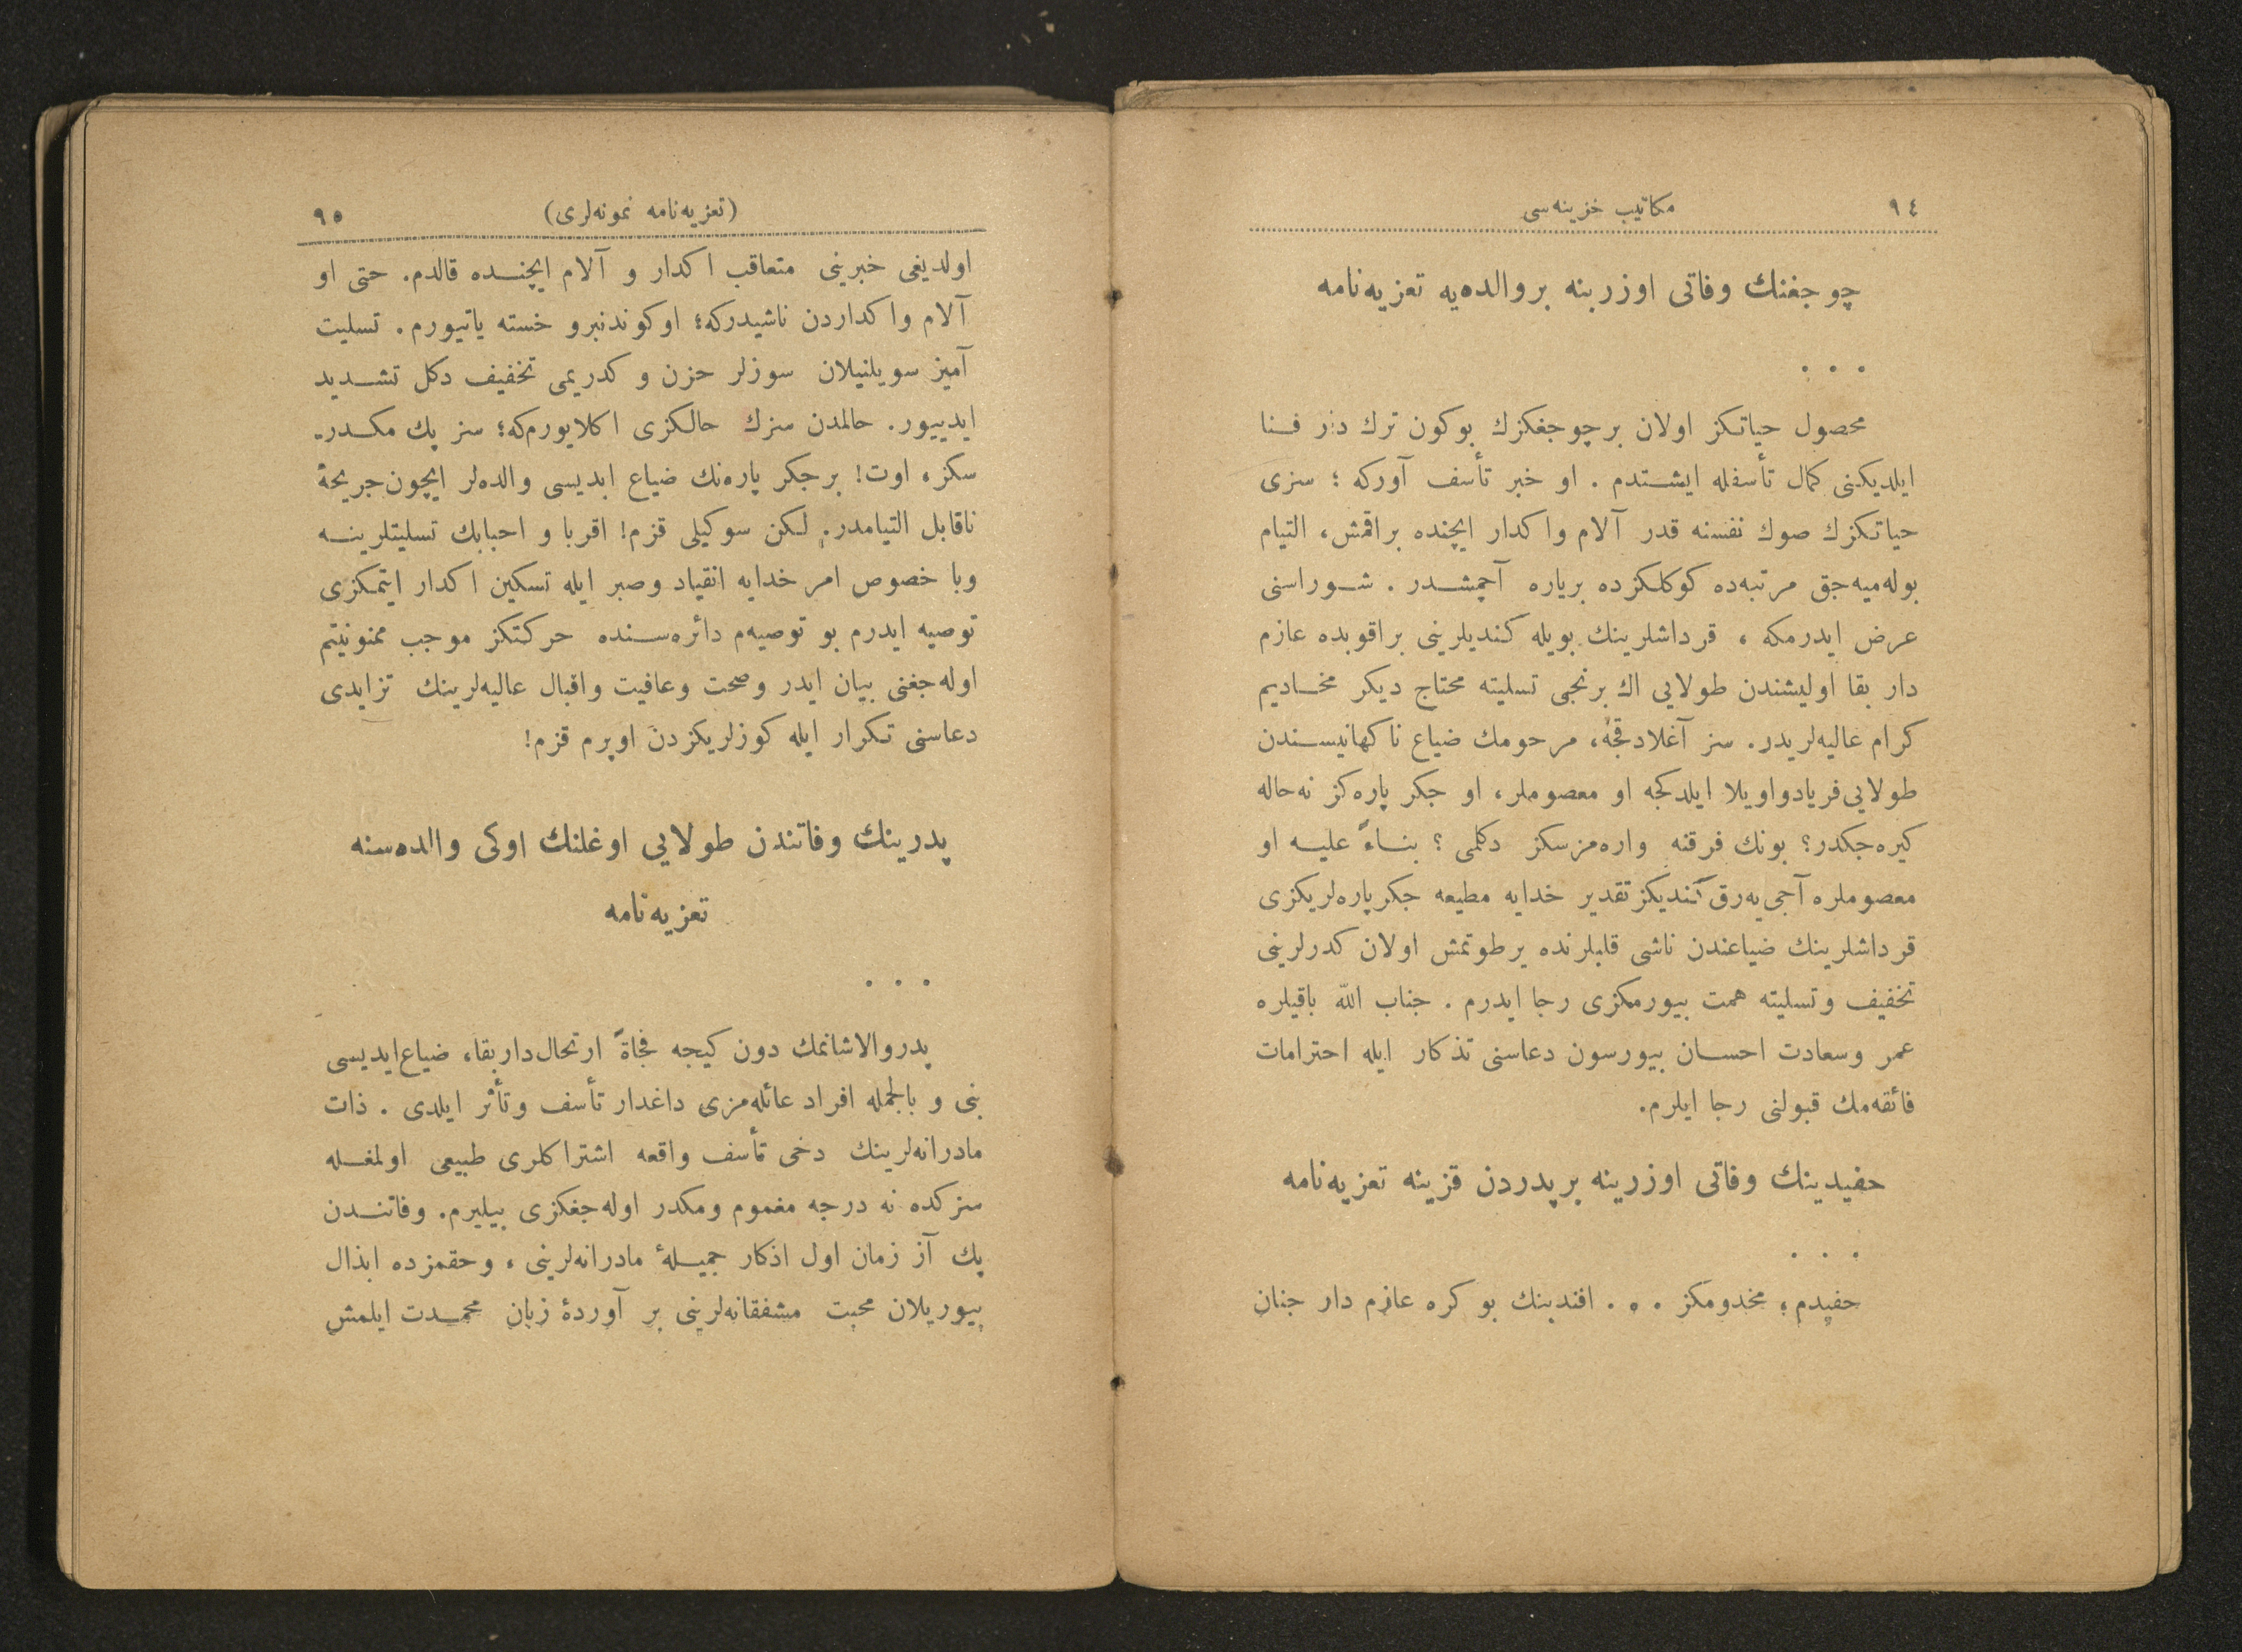 ٩٤
مكاتيب خزينه‌سى
چوجغنك وفاتى اوزرينه بروالده‌يه تعزيه‌نامه
. . .
محصول حياتكز اولان برچوجغكزك بوكون ترك دار فـنا
ايلديكنى كمال تأسفله ايشـتدم . او خبر تأسف آوركه ؛ سزى
حياتكزك صوك نفسنه قدر آلام واكدار ايچنده براقمش، التيام
بوله‌ميه‌جق مرتبه‌ده كوكلكزده برياره آچمشـدر . شـوراسنى
عرض ايدرمكه ، قرداشلرينك بويله كنديلرينى براقوبده عازم
دار بقا اوليشندن طولايى اك برنجى تسليته محتاج ديكر مخـاديم
كرام عاليه‌لريدر. سز آغلادقجه، مرحومك ضياع ناكهانيسـندن
طولايى فريادواويلا ايلدكجه او معصوملر، او جكر پاره‌كز نه‌حاله
كيره‌جكدر؟ بونك فرقنه واره‌مزسكز دكلمى ؟ بنـاءً عليـه او
معصوملره آجى‌يه‌رق كنديكز تقدير خدايه مطيعه جكرپاره‌لريكزى
قرداشلرينك ضياعندن ناشى قلبلرنده يرطوتمش اولان كدرلرينى
تخفيف وتسليته همت بيورمكزى رجا ايدرم . جناب الله باقيلره
عمر وسعادت احسـان بيورسون دعاسنى تذكار ايله احترامات
فائقه‌مك قبولنى رجا ايلرم.
حفيدينك وفاتى اوزرينه برپدردن قزينه تعزيه‌نامه
. . .
حفيدم، مخدومكز . . . افندينك بو كره عازم دار جنان
(تعزيه‌نامه نمونه‌لرى)
٩٥
اولديغى خبرينى متعاقب اكدار و آلام ايچنـده قالدم. حتى او
آلام واكداردن ناشيدركه؛ اوكوندنبرو خسته ياتيورم. تسليت
آميز سويلنيلان سوزلر حزن و كدريمى تخفيف دكل تشـديد
ايدييور. حالمدن سزك حالكزى اكلايورم‌كه؛ سز پك مكـدر-
سكز، اوت! برجكر پاره‌نك ضياع ابديسى والده‌لر ايچون‌جريحۀ
ناقابل التيامدر. لكن سوكيلى قزم! اقربا و احبابك تسليتلرينـه
وبا خصوص امر خدايه انقياد وصبر ايله تسكين اكدار ايتمكزى
توصيه ايدرم بو توصيه‌م دائره‌سـنده حركتكز موجب ممنونيتم
اوله‌جغنى بيان ايدر وصحت وعافيت واقبال عاليه‌لرينك تزايدى
دعاسنى تكرار ايله كوزلريكزدن اوپرم قزم!
پدرينك وفاتندن طولايى اوغلنك اوكى والده‌سنه
تعزيه‌نامه
. . .
پدروالاشانمك دون كيجه فجأةً ارتحال‌داربقاء ضياع‌ابديسى
بنى و بالجمله افراد عائله‌مزى داغدار تأسف وتأثر ايلدى . ذات
مادرانه‌لرينك دخى تأسف واقعه اشتراكلرى طبيعى اولمغـله
سزكده نه درجه مغموم ومكدر اوله‌جغكزى بيليرم. وفاتنـدن
پك آز زمان اول اذكار جميـلۀ مادرانه‌لرينى ، وحقمزده ابذال
بيوريلان محبت مشفقانه‌لرينى بر آوردۀ زبان محمـدت ايلمش